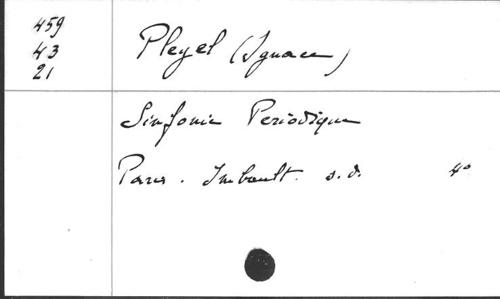 459
43
21
Pleyel (Ignace)
Sinfonie Périodique
Paris. Imbault. s.d. 4°